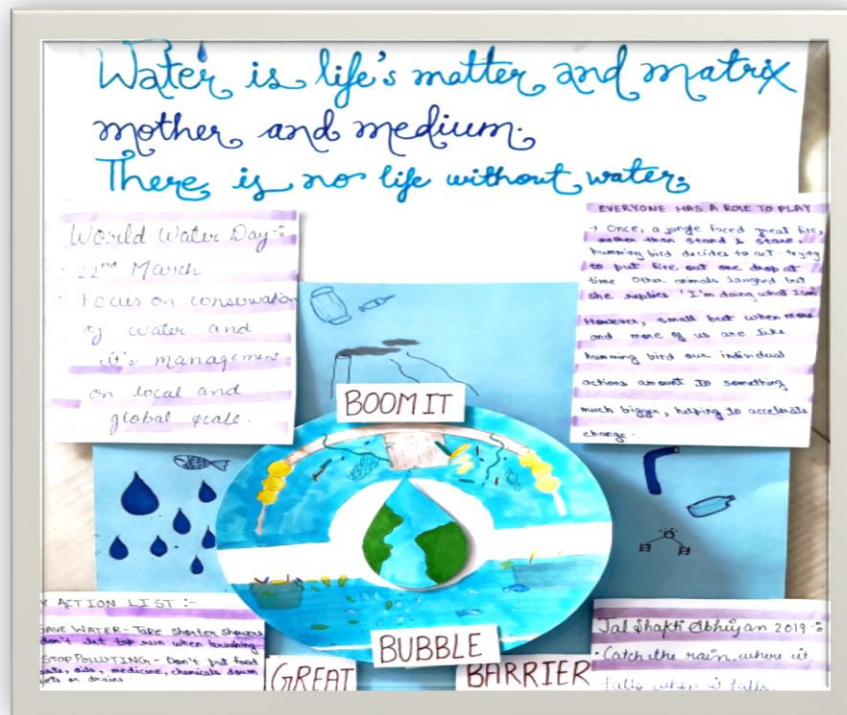 Water is life's matter and matrix
mother and medium.
There is no life without water.
World Water Day :-
· 22nd March
· Focus on conservation
of water and
it's management
on local and
global scale.
EVERYONE HAS A ROLE TO PLAY
→ Once, a jungle faced great fire,
rather than stand & stare,
humming bird decides to act - trying
to put fire out one drop at
time other animals laughed but
she replies "I'm doing what I can
However, small but when more
and more of us are like
humming bird our individual
actions amount to something
much bigger, helping to accelerate
change.
BOOM IT
BUBBLE
GREAT
BARRIER
ACTION LIST :-
SAVE WATER - Take shorter showers
don't let tap run when brushing
STOP POLLUTING - Don't put food
oils, medicine, chemicals down
or drains
Jal Shakti Abhiyan 2019 :-
· Catch the rain, where it
falls when it falls.